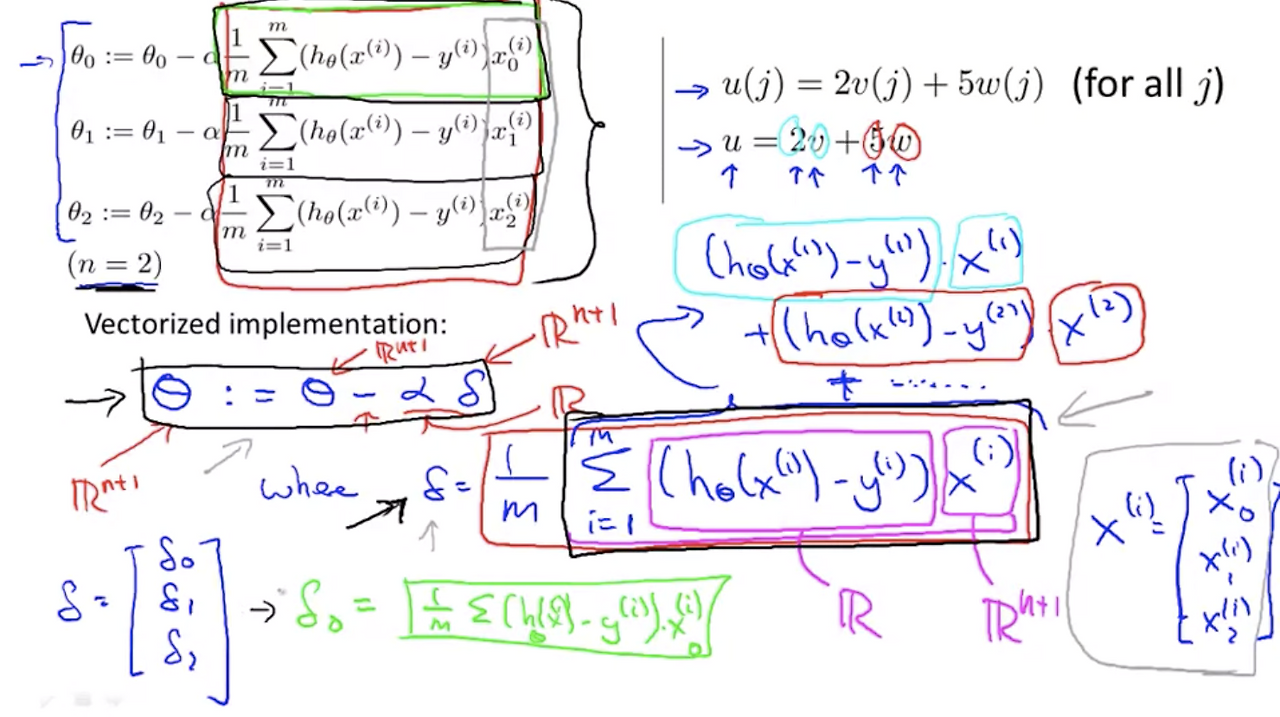 θ₀ := θ₀ − α 1/m ∑_{i=1}^{m} (h_θ(x^{(i)}) − y^{(i)}) x₀^{(i)}
θ₁ := θ₁ − α 1/m ∑_{i=1}^{m} (h_θ(x^{(i)}) − y^{(i)}) x₁^{(i)}
θ₂ := θ₂ − α 1/m ∑_{i=1}^{m} (h_θ(x^{(i)}) − y^{(i)}) x₂^{(i)}
(n = 2)
→ u(j) = 2v(j) + 5w(j) (for all j)
→ u = 2v + 5w
(h_θ(x^{(1)}) − y^{(1)}) · x^{(1)}
+ (h_θ(x^{(2)}) − y^{(2)}) · x^{(2)}
+ ........
Vectorized implementation:
ℝ^{n+1}
ℝ^{n+1}
→ θ := θ − α δ
ℝ
ℝ^{n+1}
where → δ = 1/m ∑_{i=1}^{m} (h_θ(x^{(i)}) − y^{(i)}) x^{(i)}
ℝ
ℝ^{n+1}
x^{(i)} = [x₀^{(i)} x₁^{(i)} x₂^{(i)}]
δ = [δ₀ δ₁ δ₂] → δ₀ = 1/m ∑ (h_θ(x^{(i)}) − y^{(i)}) · x₀^{(i)}